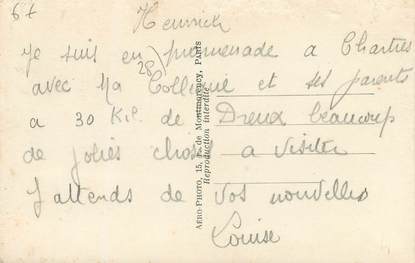 67
Heinrich
Je suis en promenade a Chartres
(28)
avec Ma Collegue et ses parents
a 30 Kil. de Dreux beaucoup
de jolies choses a visiter
J'attends de vos nouvelles
Louise
AÉRO-PHOTO, 15, R. de Montmorency, Paris
Reproduction interdite